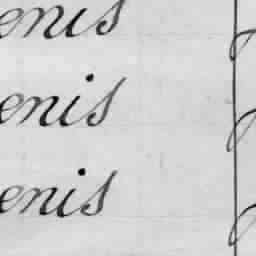 enis
enis
enis